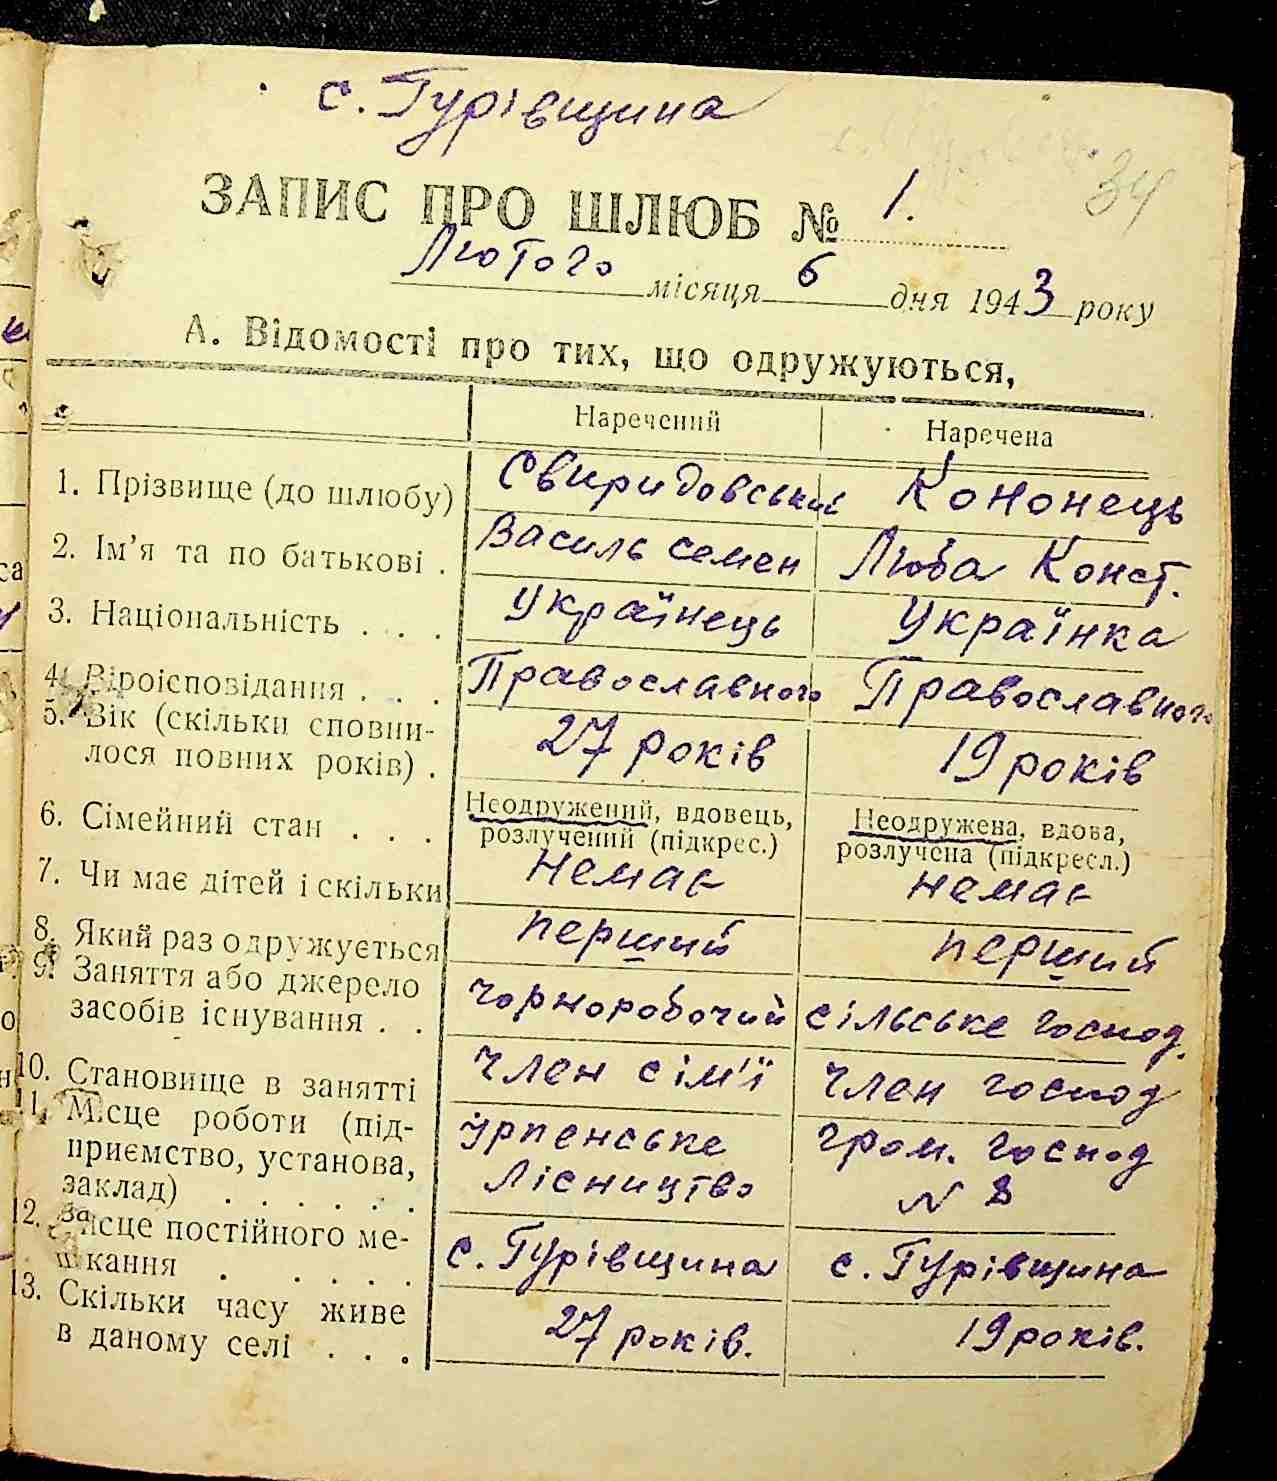 с. Гурівщина
34
ЗАПИС ПРО ШЛЮБ № 1.
Лютого місяця 6 дня 1943 року
А. Відомості про тих, що одружуються,
Наречений Наречена
1. Прізвище (до шлюбу) Свиридовський Кононець
2. Ім'я та по батькові . Василь Семен Люба Конст.
3. Національність . . . Українець Українка
4. Віроісповідання . . . Православного Православного
5. Вік (скільки сповни-
лося повних років) . 27 років 19 років
6. Сімейний стан . . . Неодружений, вдовець, розлучений (підкрес.) Неодружена, вдова, розлучена (підкресл.)
7. Чи має дітей і скільки немає немає
8. Який раз одружується перший перший
9. Заняття або джерело
засобів існування . . чорноробочий сільське господ.
10. Становище в занятті член сім'ї член господ
11. Місце роботи (під-
приємство, установа,
заклад) . . . . . . Ірпенське Лісництво гром. господ N 8
12. Місце постійного ме-
шкання . . . . . с. Гурівщина с. Гурівщина
13. Скільки часу живе
в даному селі . . . 27 років. 19 років.